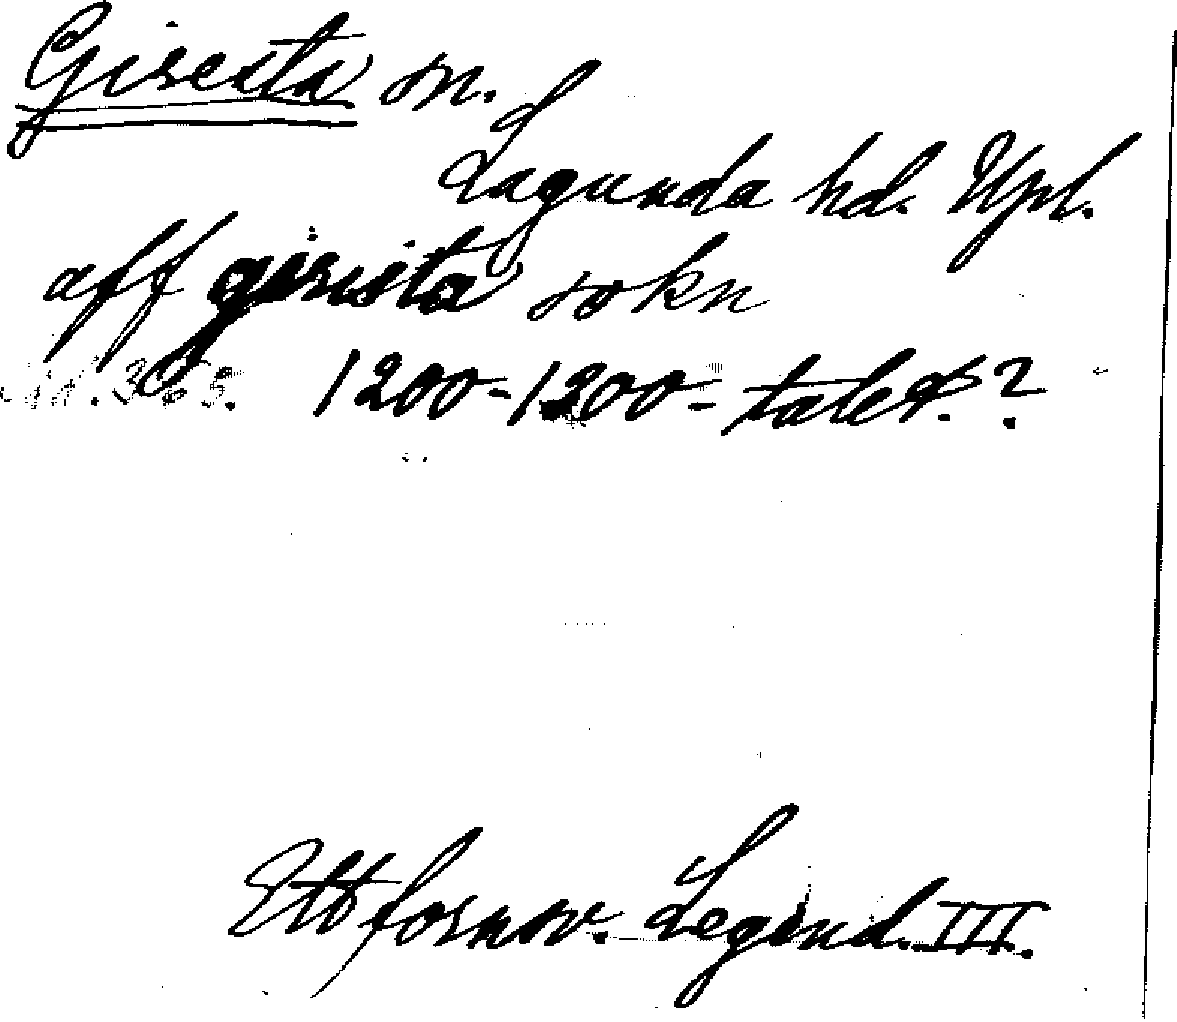 Giresta sn.
Lagunda hd. Upl.
aff girista sokn
365. 1200-1300-talet.?
Ett fornsv. Legend. III.